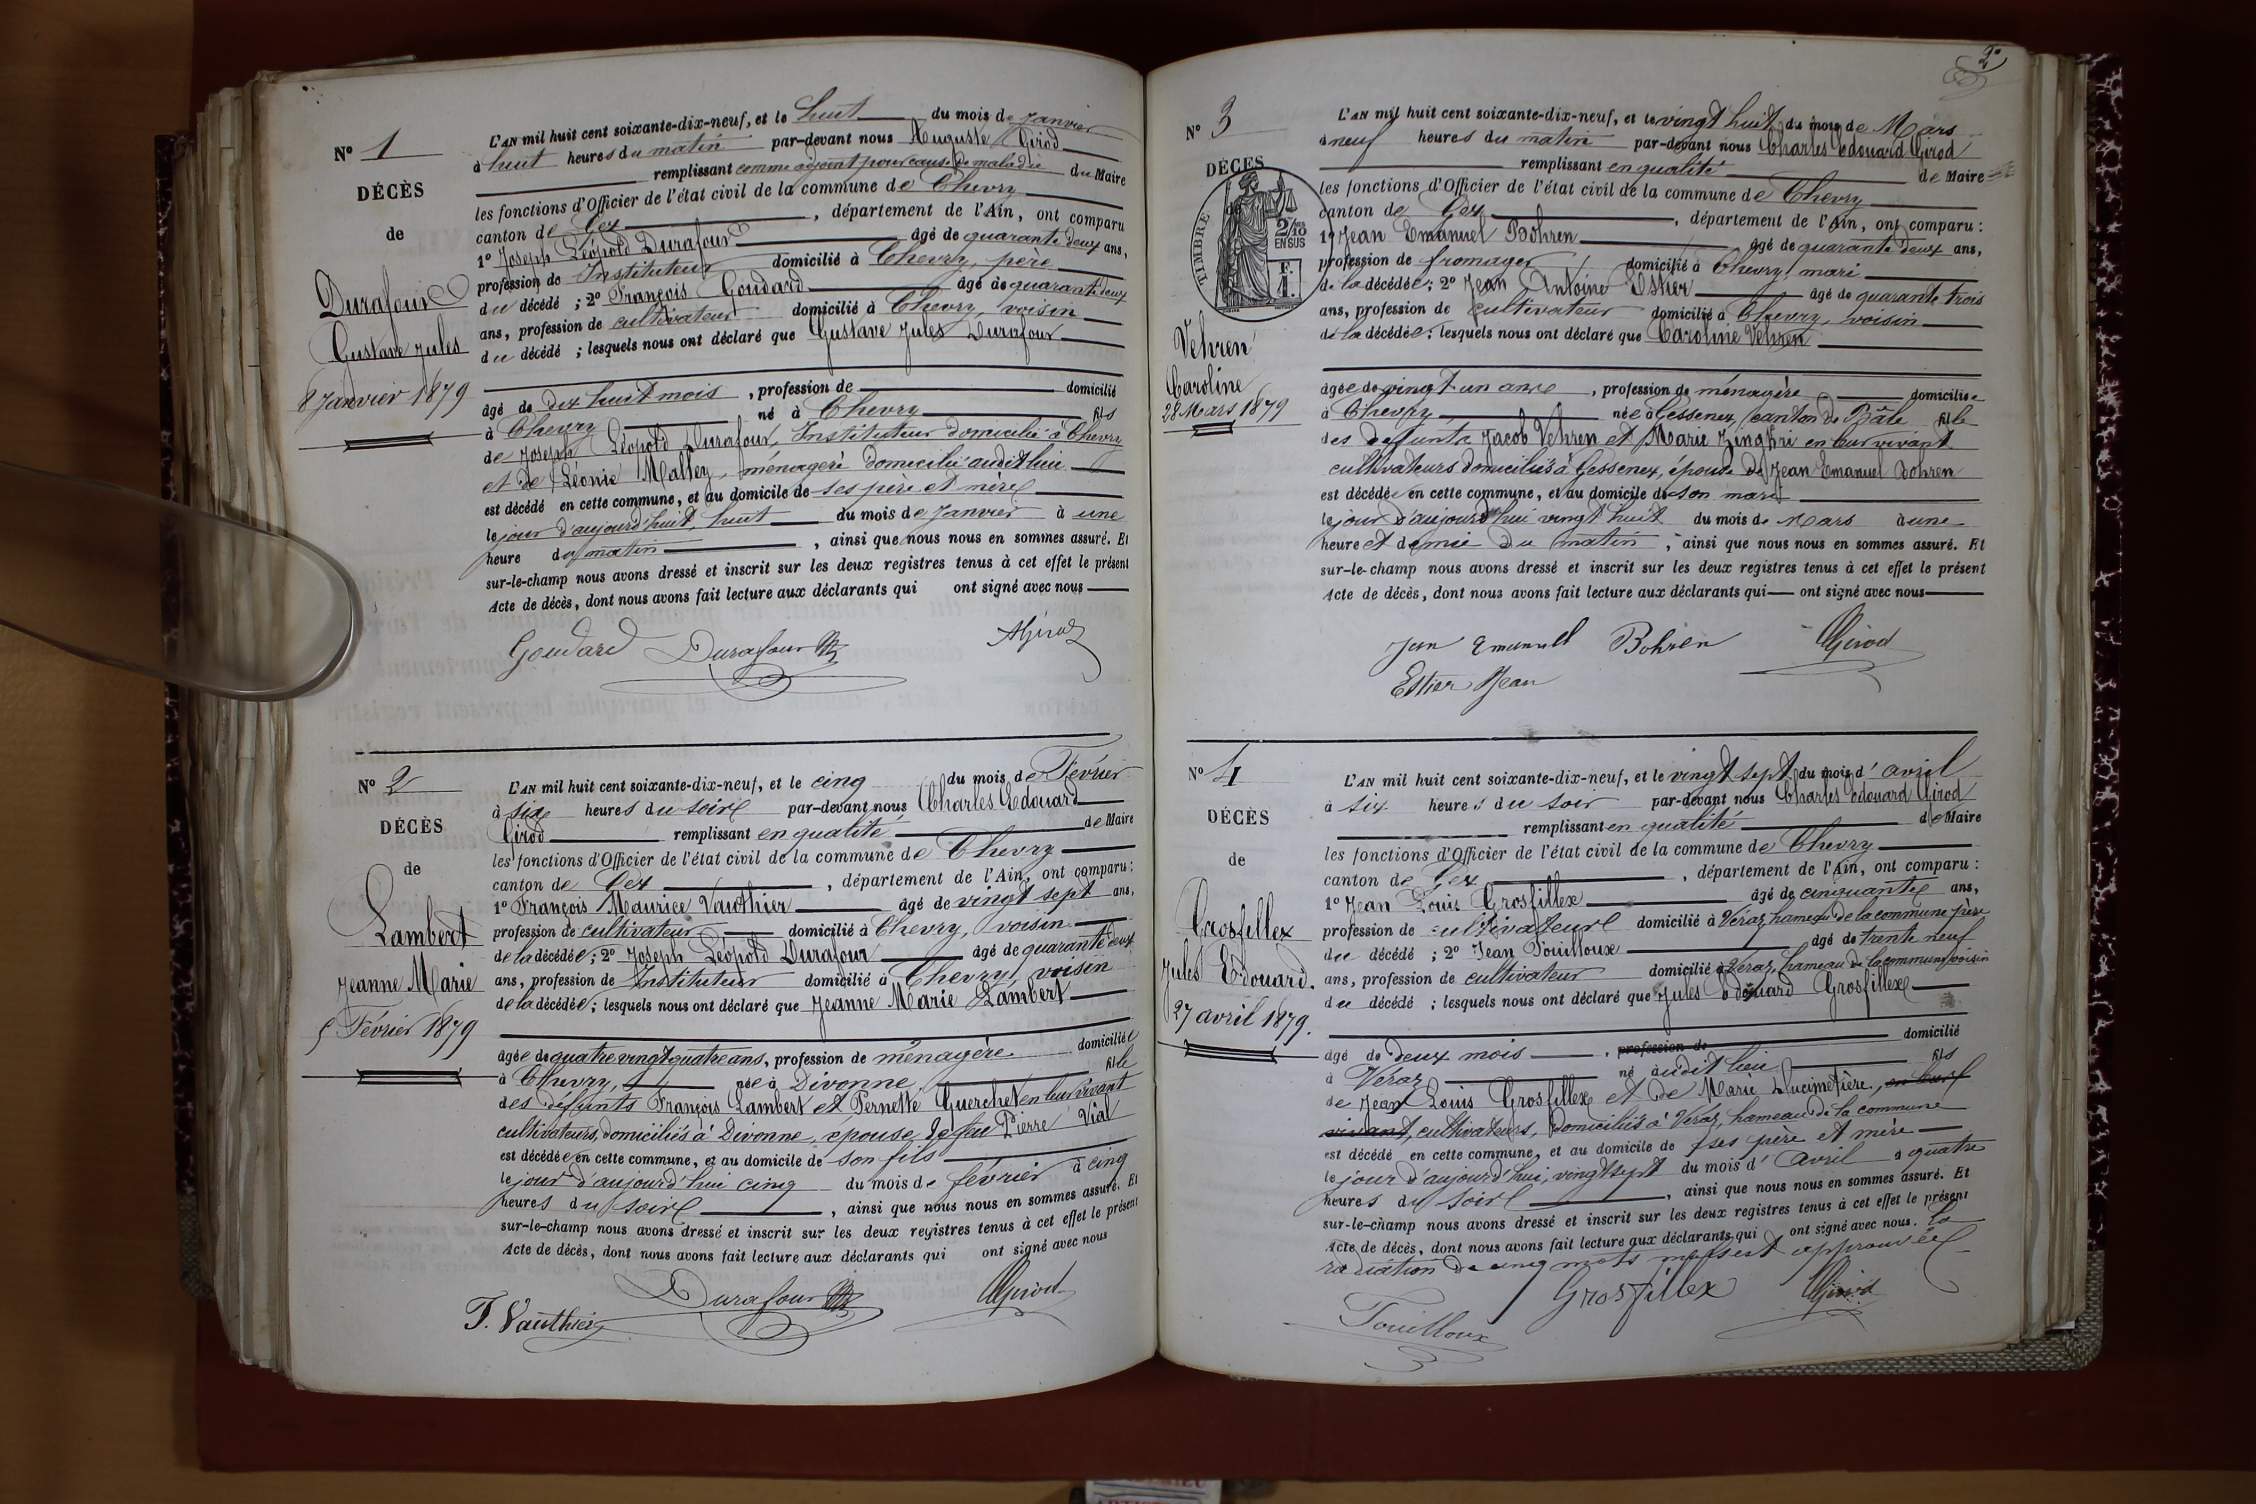 Nº 1
DÉCÈS
de
Durafour
Gustave Jules
8 Janvier 1879
L'AN mil huit cent soixante-dix-neuf, et le huit du mois de Janvier
à huit heures du matin par-devant nous Auguste Girod
remplissant comme adjoint pour cause de maladie du Maire
les fonctions d'Officier de l'état civil de la commune de Chevry
canton de Gex, département de l'Ain, ont comparu
1º Joseph Léopold Durafour âgé de quarante deux ans,
profession de Instituteur domicilié à Chevry, père
du décédé ; 2º François Goudard âgé de quarante deux
ans, profession de cultivateur domicilié à Chevry, voisin
du décédé ; lesquels nous ont déclaré que Gustave Jules Durafour
âgé de dix huit mois, profession de domicilié
à Chevry né à Chevry fils
de Joseph Léopold Durafour, Instituteur domicilié à Chevry
et de Léonie Mathey, ménagère domicilié audit lieu
est décédé en cette commune, et au domicile de ses père et mère
le jour d'aujourd'huit huit du mois de Janvier à une
heure du matin, ainsi que nous nous en sommes assuré. Et
sur-le-champ nous avons dressé et inscrit sur les deux registres tenus à cet effet le présent
Acte de décès, dont nous avons fait lecture aux déclarants qui ont signé avec nous
Goudard Durafour AGirod
Nº 2
DÉCÈS
de
Lambert
Jeanne Marie
5 Février 1879
L'AN mil huit cent soixante-dix-neuf, et le cinq du mois de Février
à six heures du soir par-devant nous Charles Edouard
Girod remplissant en qualité de Maire
les fonctions d'Officier de l'état civil de la commune de Chevry
canton de Gex, département de l'Ain, ont comparu :
1º François Maurice Vauthier âgé de vingt sept ans,
profession de cultivateur domicilié à Chevry, voisin
de la décédée ; 2º Joseph Léopold Durafour âgé de quarante deux
ans, profession de Instituteur domicilié à Chevry, voisin
de la décédée ; lesquels nous ont déclaré que Jeanne Marie Lambert
âgée de quatre vingt quatre ans, profession de ménagère domiciliée
à Chevry, née à Divonne fille
des défunts François Lambert et Pernette Guerchet en leur vivant
cultivateurs, domiciliés à Divonne, épouse de feu Pierre Vial
est décédée en cette commune, et au domicile de son fils
le jour d'aujourd'hui cinq du mois de février à cinq
heures du soir, ainsi que nous nous en sommes assuré. Et
sur-le-champ nous avons dressé et inscrit sur les deux registres tenus à cet effet le présent
Acte de décès, dont nous avons fait lecture aux déclarants qui ont signé avec nous
F. Vauthier Durafour CGirod
2
Nº 3
DÉCES
de
TIMBRE
2/10
EN SUS
F.
1.
Vehren
Caroline
28 Mars 1879
L'AN mil huit cent soixante-dix-neuf, et le vingt huit du mois de Mars
à neuf heures du matin par-devant nous Charles Edouard Girod
remplissant en qualité de Maire
les fonctions d'Officier de l'état civil de la commune de Chevry
canton de Gex, département de l'Ain, ont comparu :
1º Jean Emanuel Bohren âgé de quarante deux ans,
profession de fromager domicilié à Chevry, mari
de la décédée ; 2º Jean Antoine Estier âgé de quarante trois
ans, profession de cultivateur domicilié à Chevry, voisin
de la décédée ; lesquels nous ont déclaré que Caroline Vehren
âgée de vingt un ans, profession de ménagère domiciliée
à Chevry née à Gessenez, canton de Bâle fille
des défunts Jacob Vehren et Marie en leur vivant
cultivateurs domiciliés à Gessenez, épouse de Jean Emanuel Bohren
est décédée en cette commune, et au domicile de son mari
le jour d'aujourd'hui vingt huit du mois de Mars à une
heure et demie du matin, ainsi que nous nous en sommes assuré. Et
sur-le-champ nous avons dressé et inscrit sur les deux registres tenus à cet effet le présent
Acte de décès, dont nous avons fait lecture aux déclarants qui ont signé avec nous
Jean Emanuel Bohren CGirod
Estier Jean
Nº 4
DÉCÈS
de
Grosfillex
Jules Edouard.
27 avril 1879.
L'AN mil huit cent soixante-dix-neuf, et le vingt sept du mois d'avril
à six heures du soir par-devant nous Charles Edouard Girod
remplissant en qualité de Maire
les fonctions d'Officier de l'état civil de la commune de Chevry
canton de Gex, département de l'Ain, ont comparu :
1º Jean Louis Grosfillex âgé de cinquante ans,
profession de cultivateur domicilié à Véraz, hameau de la commune père
du décédé ; 2º Jean Touilloux âgé de trente neuf
ans, profession de cultivateur domicilié à Véraz, hameau de la commune voisin
du décédé ; lesquels nous ont déclaré que Jules Edouard Grosfillex
âgé de deux mois, profession de domicilié
à Véraz né audit lieu fils
de Jean Louis Grosfillex et de Marie Ducimetière, en leur
vivant, cultivateurs, domiciliés à Véraz, hameau de la commune
est décédé en cette commune, et au domicile de ses père et mère
le jour d'aujourd'hui, vingt sept du mois d'avril à quatre
heures du soir, ainsi que nous nous en sommes assuré. Et
sur-le-champ nous avons dressé et inscrit sur les deux registres tenus à cet effet le présent
Acte de décès, dont nous avons fait lecture aux déclarants qui ont signé avec nous. la
radiation de cinq mots nuls est approuvée
Grosfillex CGirod
Touilloux